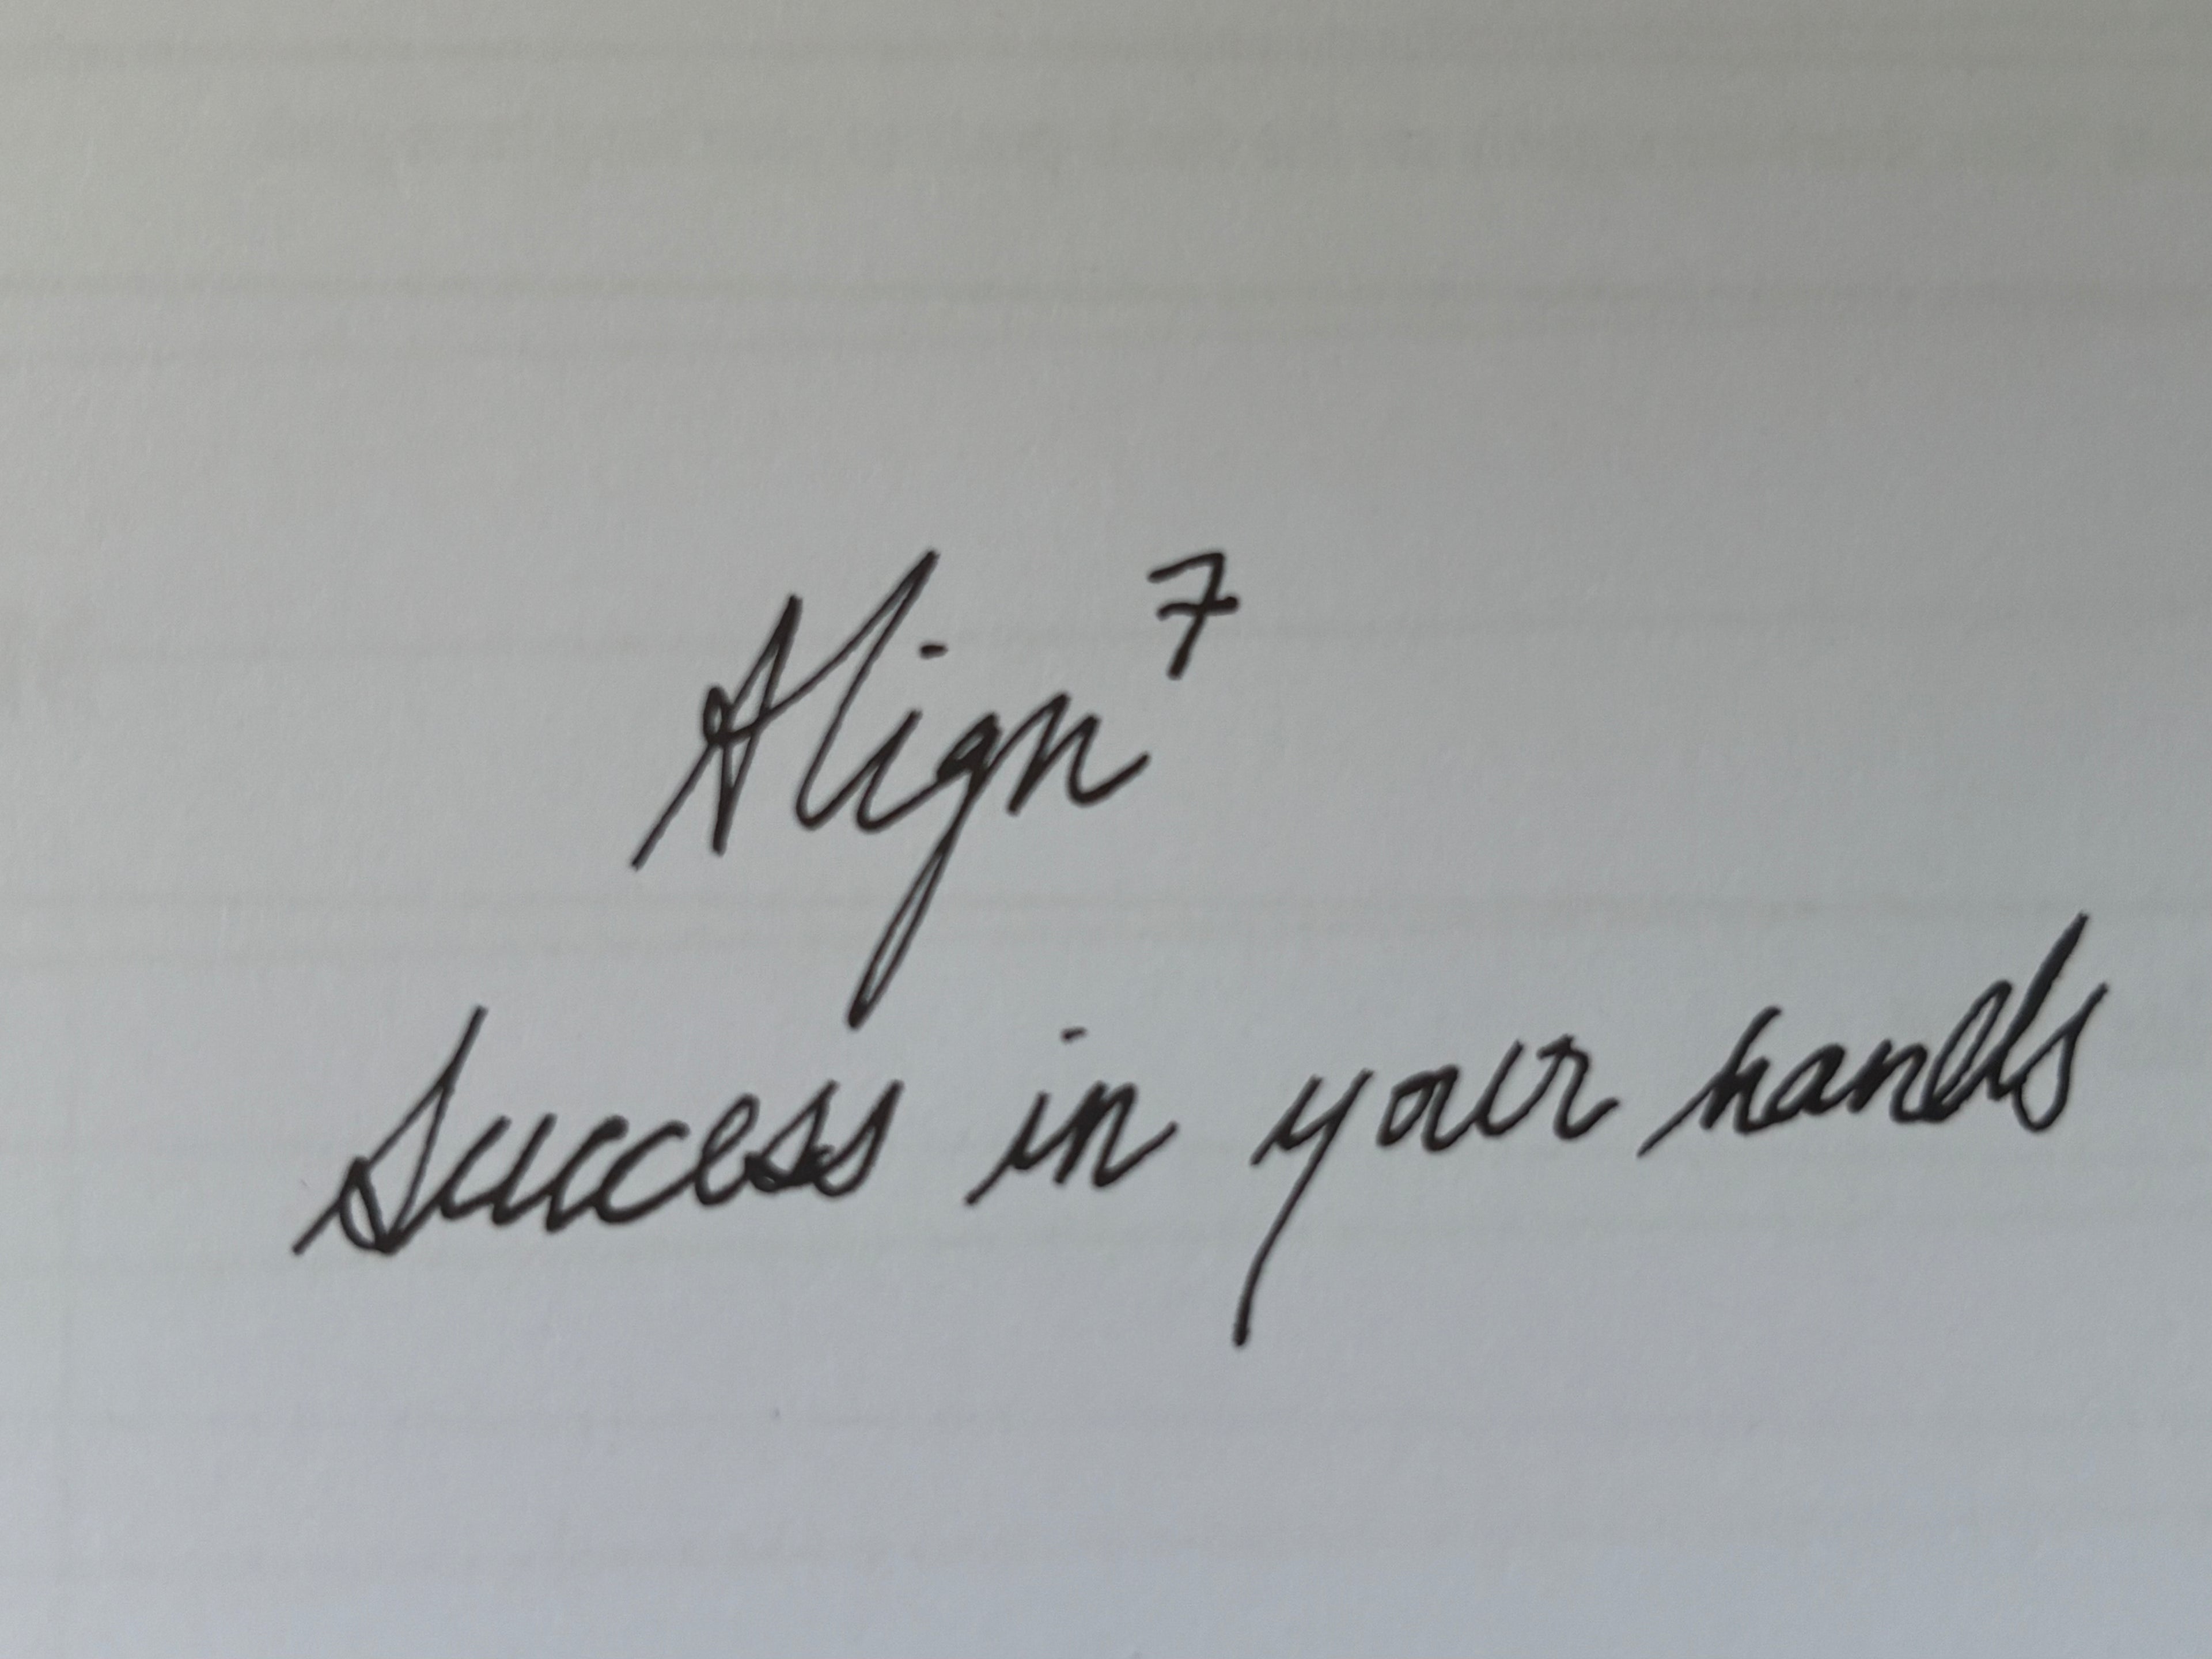 Align⁷
Success in your hands